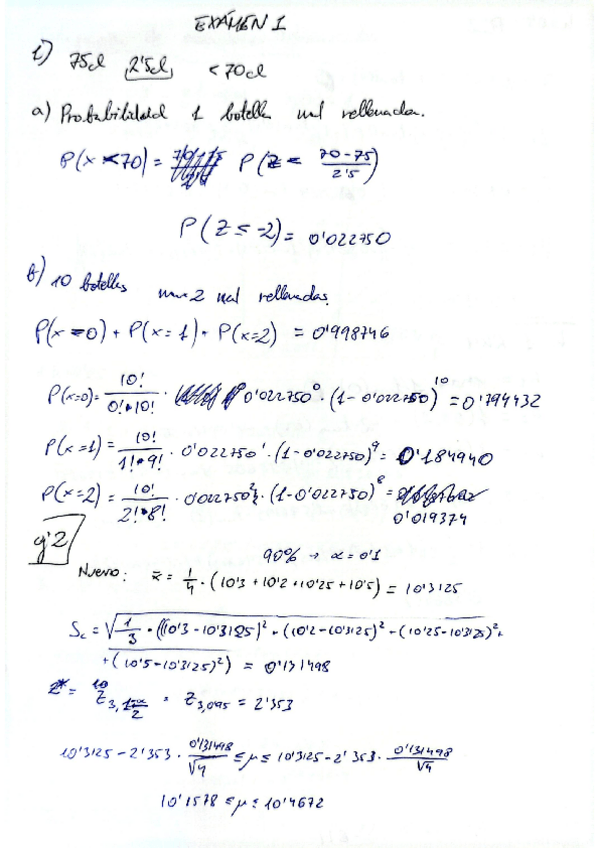 EXÁMEN 1
1) 75cl 2'5cl <70cl
a) Probabilidad 1 botella mal rellenada.
P(x<70) = P(Z ≤ (70-75)/2'5)
P(Z ≤ -2) = 0'022750
b) 10 botellas max 2 mal rellenadas.
P(x=0) + P(x=1) + P(x=2) = 0'998746
P(x=0) = 10!/(0!·10!) · 0'022750⁰ · (1-0'022750)¹⁰ = 0'794432
P(x=1) = 10!/(1!·9!) · 0'022750¹ · (1-0'022750)⁹ = 0'184940
P(x=2) = 10!/(2!·8!) · 0'022750² · (1-0'022750)⁸ =
0'019374
90% → α=0'1
Nuevo: x̄ = 1/4 · (10'3+10'2+10'25+10'5) = 10'3125
Sc = √(1/3 · ((10'3-10'3125)² + (10'2-10'3125)² + (10'25-10'3125)² +
+ (10'5-10'3125)²) = 0'131498
= Z3,095 = 2'353
10'3125 - 2'353 · 0'131498/√4 ≤ μ ≤ 10'3125 - 2'353 · 0'131498/√4
10'1578 ≤ μ ≤ 10'4672